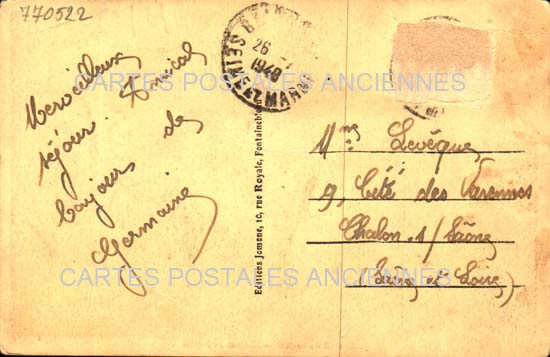 770522
Merveilleux
séjour. Amical
bonjour de
Germaine
26
1948
SEINE ET MARNE
Editions Jomone, 10, rue Royale, Fontainebleau
Mme Levêque
9, Cité des Varennes
Chalon s/ Saône
(Saône et Loire)
CARTES POSTALES ANCIENNES
CARTES POSTALES ANCIENNES